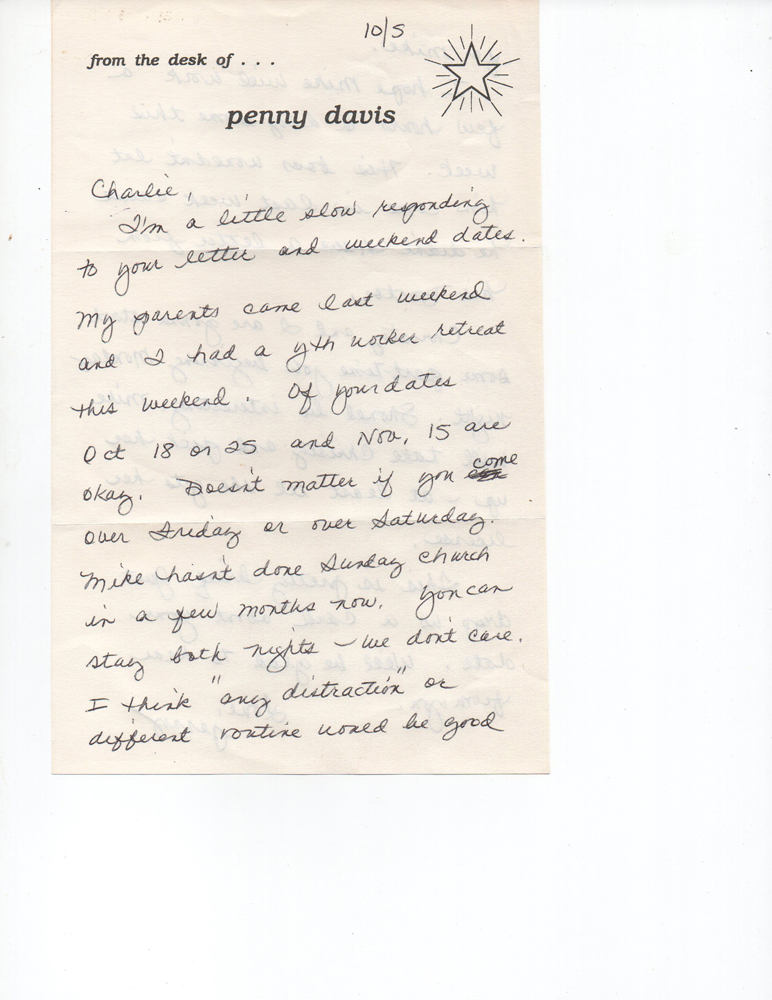 10/5
from the desk of . . .
penny davis
Charlie,
I'm a little slow responding
to your letter and weekend dates.
My parents came last weekend
and I had a yth worker retreat
this weekend. Of your dates
Oct 18 or 25 and Nov. 15 are
okay. Doesn't matter if you come
over Friday or over Saturday.
Mike hasn't done Sunday church
in a few months now. You can
stay both nights – we don't care.
I think "any distraction" or
different routine would be good